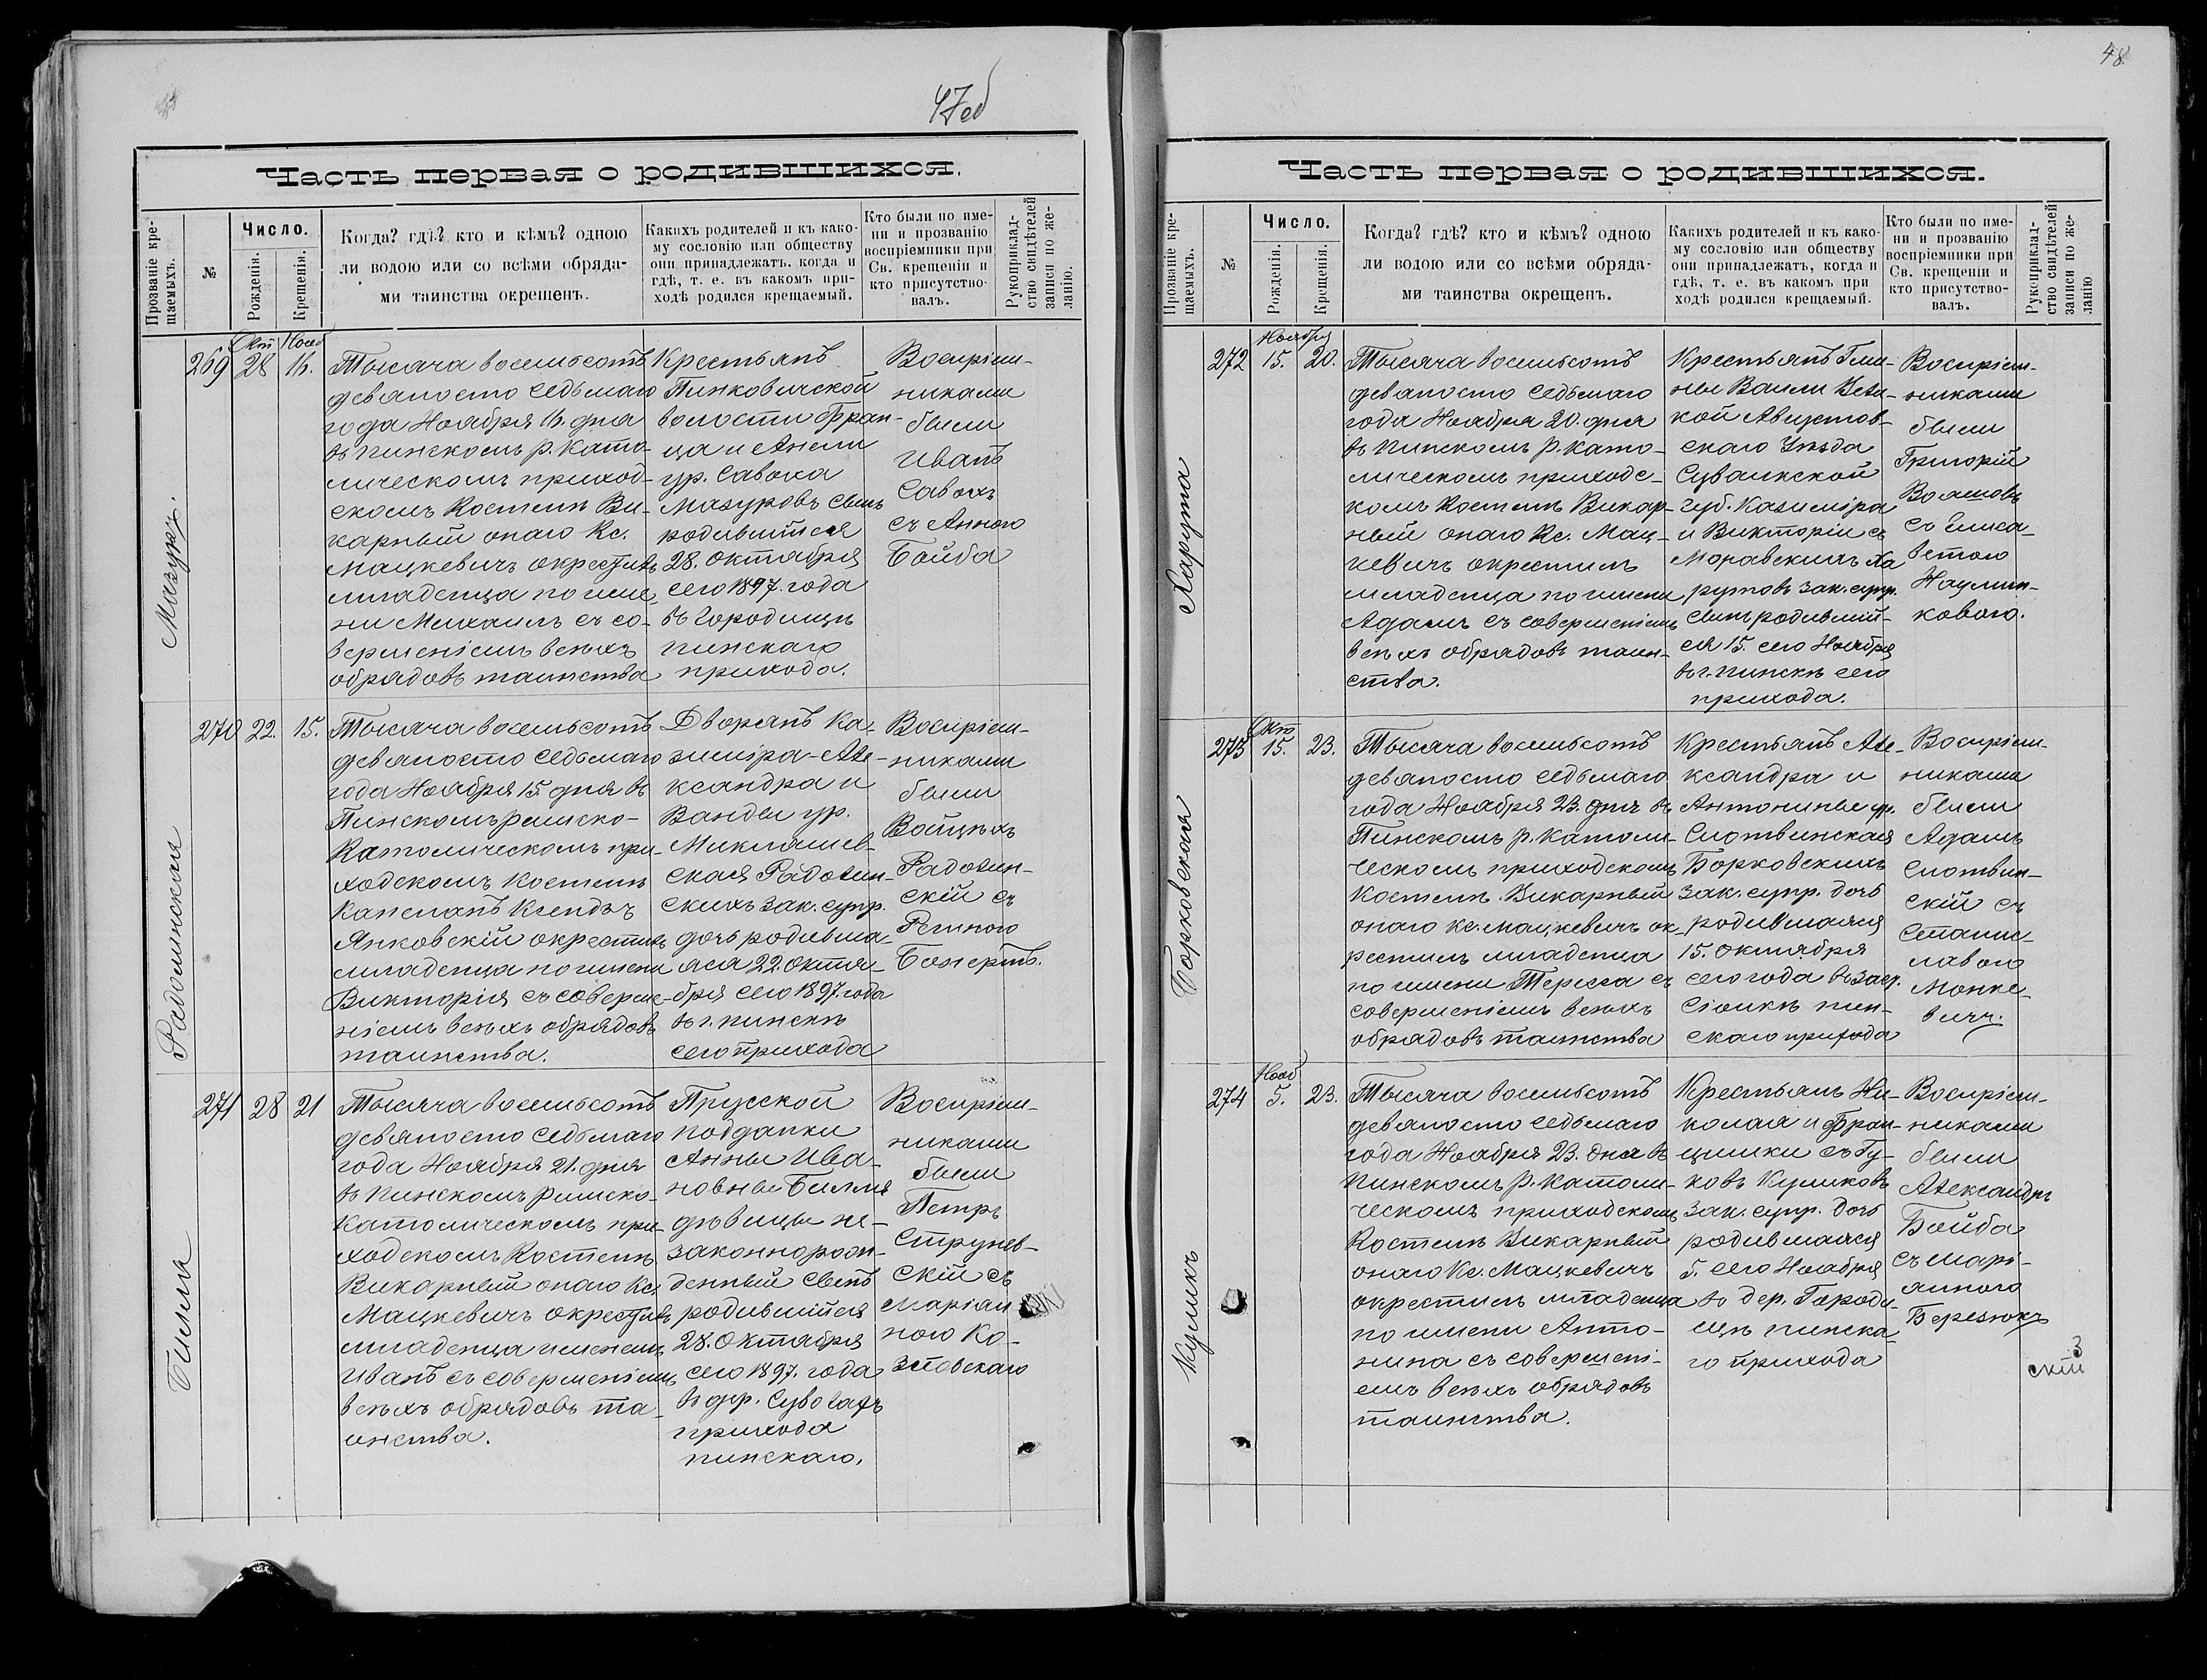 47об
Часть первая о родившихся.
Прозваніе кре-
щаемыхъ.
№
Число.
Рожденія.
Крещенія.
Когда? гдѣ? кто и кѣмъ? одною
ли водою или со всѣми обряда-
ми таинства окрещенъ.
Какихъ родителей и къ како-
му сословію или обществу
они принадлежатъ, когда и
гдѣ, т. е. въ какомъ при-
ходѣ родился крещаемый.
Кто были по име-
ни и прозванію
воспріемники при
Св. крещеніи и
кто присутство-
валъ.
Рукоприклад-
ство свидѣтелей
записи по же-
ланію.
Мазуръ.
269
Окт
28
Нояб
16.
Тысяча восемьсотъ
девяносто седьмаго
года Ноября 16. дня
въ пинскомъ р. Като-
лическомъ приход-
скомъ Костелѣ Ви-
карный онаго Кс.
Мацкевичъ окрестилъ
младенца по име-
ни Михаилъ съ со-
вершеніемъ всѣхъ
обрядовъ таинства
Крестьянъ
Пинковичской
волости Фран-
ца и Анели
ур. Савоха
Мазуровъ сынъ
родившійся
28. Октября
сего 1897. года
въ Городищѣ
пинскаго
прихода.
Воспріем-
никами
были
Иванъ
Савохъ
съ Анною
Бойба
Радолинская
270
22.
15.
Тысяча восемьсотъ
девяносто седьмаго
года Ноября 15. дня въ
Пинскомъ римско-
Католическомъ при-
ходскомъ костелѣ
Капеланъ Ксендзъ
Янковскій окрестилъ
младенца по имени
Викторія съ соверше-
ніемъ всѣхъ обрядовъ
таинства.
Дворянъ Ка-
зиміра-Але-
ксандра и
Ванды ур.
Микляшев-
ская Радолин-
скихъ зак. супр.
дочь родивша-
яся 22. Октя-
бря сего 1897. года
въ г. пинскѣ
сего прихода
Воспріем-
никами
были
Войцѣхъ
Радолин-
скій съ
Региною
Бонертъ.
Билла
271
28
21
Тысяча восемьсотъ
девяносто седьмаго
года Ноября 21. дня
въ Пинскомъ римско-
Католическомъ при-
ходскомъ Костелѣ
Викарный онаго Кс.
Мацкевичъ окрестилъ
младенца именемъ
Иванъ съ совершеніемъ
всѣхъ обрядовъ та-
инства.
Прусской
подданки
Анны Ива-
новны Билля
дѣвицы не-
законнорож-
денный сынъ
родившійся
28. Октября
сего 1897. года
въ дер.
прихода
пинскаго.
Воспріем-
никами
были
Петръ
скій съ
Маріан-
ною Ко-
зловскаго
48
Часть первая о родившихся.
Прозваніе кре-
щаемыхъ.
№
Число.
Рожденія.
Крещенія.
Когда? гдѣ? кто и кѣмъ? одною
ли водою или со всѣми обряда-
ми таинства окрещенъ.
Какихъ родителей и къ како-
му сословію или обществу
они принадлежатъ, когда и
гдѣ, т. е. въ какомъ при
ходѣ родился крещаемый.
Кто были по име-
ни и прозванію
воспріемники при
Св. крещеніи и
кто присутство-
валъ.
Рукоприклад-
ство свидѣтелей
записи по же-
ланію
Харута
272
Ноября
15.
20.
Тысяча восемьсотъ
девяносто седьмаго
года Ноября 20. дня
въ Пинскомъ р. Като-
лическомъ приходс-
комъ Костелѣ Викар-
ный онаго Кс. Мац-
кевичъ окрестилъ
младенца по имени
Адамъ съ совершеніемъ
всѣхъ обрядовъ таин-
ства.
Крестьянъ Гми-
ны Волли
кой Августов-
скаго Уѣзда
Сувалкской
губ. Казиміра
и Викторіи съ
Моравскихъ Ха
рутовъ зак. супр.
сынъ родившій-
ся 15. сего Ноября
въ г. пинскѣ сего
прихода.
Воспріем-
никами
были
Григорій
съ Елиса-
ветою
Наумчи-
ковою.
Борковская
273
Окт
15.
23.
Тысяча восемьсотъ
девяносто седьмаго
года Ноября 23. дня въ
Пинскомъ р. Католи-
ческомъ приходскомъ
Костелѣ Викарный
онаго Кс. Мацкевичъ ок-
рестилъ младенца
по имени Тересса съ
совершеніемъ всѣхъ
обрядовъ таинства
Крестьянъ Але-
ксандра и
Антонины ур.
Слотвинская
Борковскихъ
зак. супр. дочь
родившаяся
15. Октября
сего года въ
пин-
скаго прихода
Воспріем-
никами
были
Адамъ
Слотвин-
скій съ
Станис-
лавою
Монке-
вичъ.
Куликъ
274
Нояб
5.
23.
Тысяча восемьсотъ
девяносто седьмаго
года Ноября 23. дня въ
Пинскомъ р. Католи-
ческомъ приходскомъ
Костелѣ Викарный
онаго Кс. Мацкевичъ
окрестилъ младенца
по имени Анто-
нина съ совершені-
емъ всѣхъ обрядовъ
таинства.
Крестьянъ Ни-
колая и Фран-
цишки съ Гу-
ковъ Куликовъ
зак. супр. дочь
родившаяся
5. сего Ноября
въ дер. Городи-
щѣ пинска-
го прихода
Воспріем-
никами
были
Александръ
Бойба
съ Марі-
анною
Березюкъ